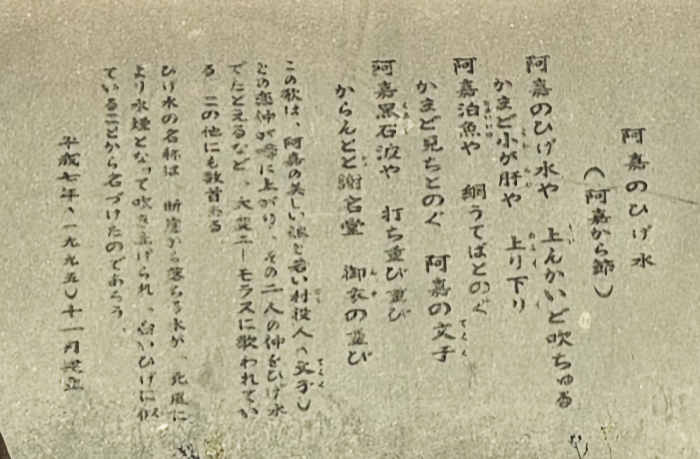 阿嘉のひげ水
（阿嘉から節）
阿嘉のひげ水や　上んかいど吹ちゅる
かまど小が肝や　上り下り
阿嘉泊魚や　網うてばとのぐ
かまど見ちとのぐ　阿嘉の文子
阿嘉黒石波や　打ち並び並び
からんとと謝名堂　御衣の並び
この歌は、阿嘉の美しい娘と若い村役人（文子）
との恋仲が噂に上がり、その二人の仲をひげ水
でたとえるなど、大変ユーモラスに歌われてい
る この他にも数首ある
ひげ水の名称は 断崖から落ちる水が、北風に
より水煙となって吹き上げられ、白いひげに似
ていることから名づけたのであろう、
平成七年（一九九五）十一月建立